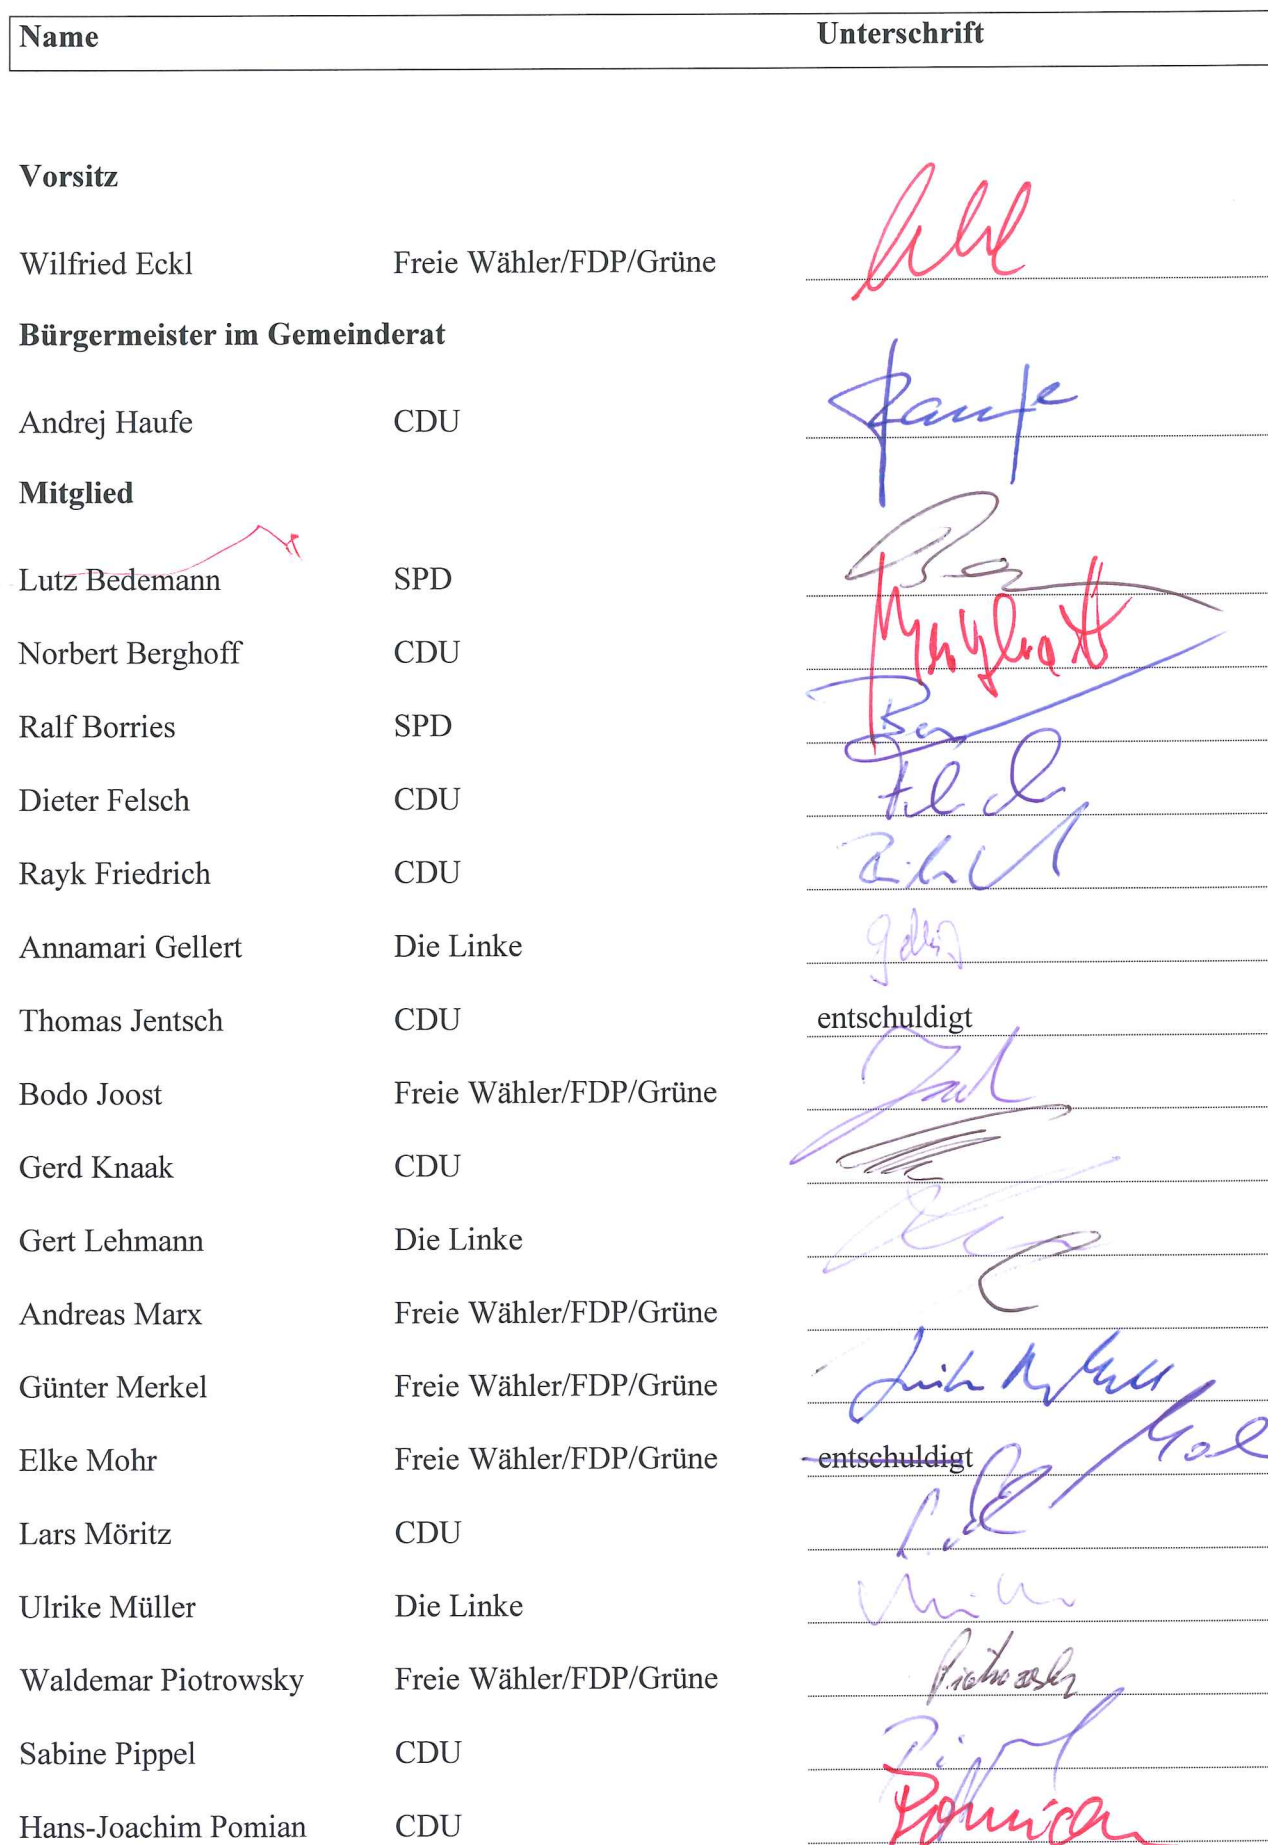 Name Unterschrift
Vorsitz
Wilfried Eckl Freie Wähler/FDP/Grüne
Bürgermeister im Gemeinderat
Andrej Haufe CDU Haufe
Mitglied
Lutz Bedemann SPD
Norbert Berghoff CDU
Ralf Borries SPD
Dieter Felsch CDU
Rayk Friedrich CDU
Annamari Gellert Die Linke
Thomas Jentsch CDU entschuldigt
Bodo Joost Freie Wähler/FDP/Grüne
Gerd Knaak CDU
Gert Lehmann Die Linke
Andreas Marx Freie Wähler/FDP/Grüne
Günter Merkel Freie Wähler/FDP/Grüne
Elke Mohr Freie Wähler/FDP/Grüne entschuldigt
Lars Möritz CDU
Ulrike Müller Die Linke
Waldemar Piotrowsky Freie Wähler/FDP/Grüne Piotrowsky
Sabine Pippel CDU
Hans-Joachim Pomian CDU Pomian